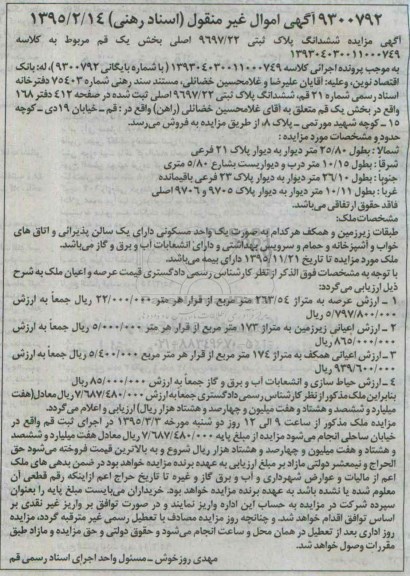 ۹۳۰۰۷۹۲ آگهی اموال غیر منقول (اسناد رهنی) ۱۳۹۵/۲/۱۴
آگهی مزایده ششدانگ پلاک ثبتی ۹۶۹۷/۲۲ اصلی بخش یک قم مربوط به کلاسه
۱۳۹۳۰۴۰۳۰۰۱۱۰۰۰۷۴۹
به موجب پرونده اجرائی کلاسه ۱۳۹۳۰۴۰۳۰۰۱۱۰۰۰۷۴۹ (با شماره بایگانی ۹۳۰۰۷۹۲)، له: بانک
اقتصاد نوین، وعلیه: آقایان علیرضا و غلامحسین خضائلی، مستند سند رهنی شماره ۷۵۴۰۳ دفترخانه
اسناد رسمی شماره ۲۱ قم، ششدانگ پلاک ثبتی ۹۶۹۷/۲۲ اصلی ثبت شده در صفحه ۴۱۲ دفتر ۱۶۸
واقع در بخش یک قم متعلق به آقای غلامحسین خضائلی (راهن) واقع در: قم - خیابان ۱۹دی - کوچه
۱۵ - کوچه شهید مورتمی - پلاک ۸، از طریق مزایده به فروش می‌رسد.
حدود و مشخصات مورد مزایده:
شمالا: بطول ۲۵/۸۰ متر دیوار به دیوار پلاک ۲۱ فرعی
شرقا: بطول ۱۰/۱۵ متر درب و دیواریست بشارع ۵/۸۰ متری
جنوبا: بطول ۲۶/۱۰ متر دیوار به دیوار پلاک ۲۳ فرعی باقیمانده
غربا: بطول ۱۰/۱۱ متر دیوار به دیوار پلاک ۹۷۰۵ و ۹۷۰۶ اصلی
فاقد حقوق ارتفاقی می‌باشد.
مشخصات ملک:
طبقات زیرزمین و همکف هرکدام به صورت یک واحد مسکونی دارای یک سالن پذیرائی و اتاق های
خواب و آشپزخانه و حمام و سرویس بهداشتی و دارای انشعابات آب و برق و گاز می‌باشد.
ملک مورد مزایده تا تاریخ ۱۳۹۵/۱۱/۲۱ دارای بیمه می‌باشد.
با توجه به مشخصات فوق الذکر از نظر کارشناس رسمی دادگستری قیمت عرصه و اعیان ملک به شرح
ذیل ارزیابی می‌گردد:
۱ - ارزش عرصه به متراژ ۲۶۳/۵۴ متر مربع از قرار هر متر ۲۲/۰۰۰/۰۰۰ ریال جمعاً به ارزش
۵/۷۹۷/۸۰۰/۰۰۰ ریال
۲ - ارزش اعیانی زیرزمین به متراژ ۱۷۳ متر مربع از قرار هر متر ۵/۰۰۰/۰۰۰ ریال جمعاً به ارزش
۸۶۵/۰۰۰/۰۰۰ ریال
۳ - ارزش اعیانی همکف به متراژ ۱۷۴ متر مربع از قرار هر متر مربع ۵/۴۰۰/۰۰۰ ریال جمعاً به ارزش
۹۳۹/۶۰۰/۰۰۰ ریال
۴ - ارزش حیاط سازی و انشعابات آب و برق و گاز جمعاً به ارزش ۸۵/۰۰۰/۰۰۰ ریال
بنابراین ملک مذکور از نظر کارشناس رسمی دادگستری جمعا به ارزش ۷/۶۸۷/۴۸۰/۰۰۰ ریال معادل (هفت
میلیارد و ششصد و هشتاد و هفت میلیون و چهارصد و هشتاد هزار ریال) ارزیابی و اعلام می‌گردد.
مزایده ملک مذکور از ساعت ۹ الی ۱۲ روز دو شنبه مورخه ۱۳۹۵/۳/۳ در اجرای ثبت قم واقع در
خیابان ساحلی انجام می‌شود مزایده از مبلغ پایه ۷/۶۸۷/۴۸۰/۰۰۰ ریال معادل هفت میلیارد و ششصد
و هشتاد و هفت میلیون و چهارصد و هشتاد هزار ریال شروع و به بالاترین قیمت فروخته می‌شود حق
الحراج و نیمعشر دولتی مازاد بر مبلغ ارزیابی به عهده برنده مزایده خواهد بود در ضمن بدهی های ملک
اعم از مالیات و عوارض شهرداری و آب و برق گاز و غیره تا تاریخ حراج اعم ازاینکه رقم قطعی آن
معلوم شده یا نشده باشد به عهده برنده مزایده خواهد بود. خریداران می‌بایست مبلغ پایه را بعنوان
سپرده شرکت در مزایده به حساب این اداره واریز نمایند و در صورت توافق بر واریز غیر نقدی بر
اساس توافق اقدام خواهد شد. و چنانچه روز مزایده مصادف با تعطیل رسمی غیر مترقبه گردد، مزایده
روز اداری بعد از تعطیل در همان محل و ساعت انجام می‌شود و حقوق دولتی و حق مزایده و مازاد طبق
مقررات وصول خواهد شد.
مهدی روز خوش - مسئول واحد اجرای اسناد رسمی قم